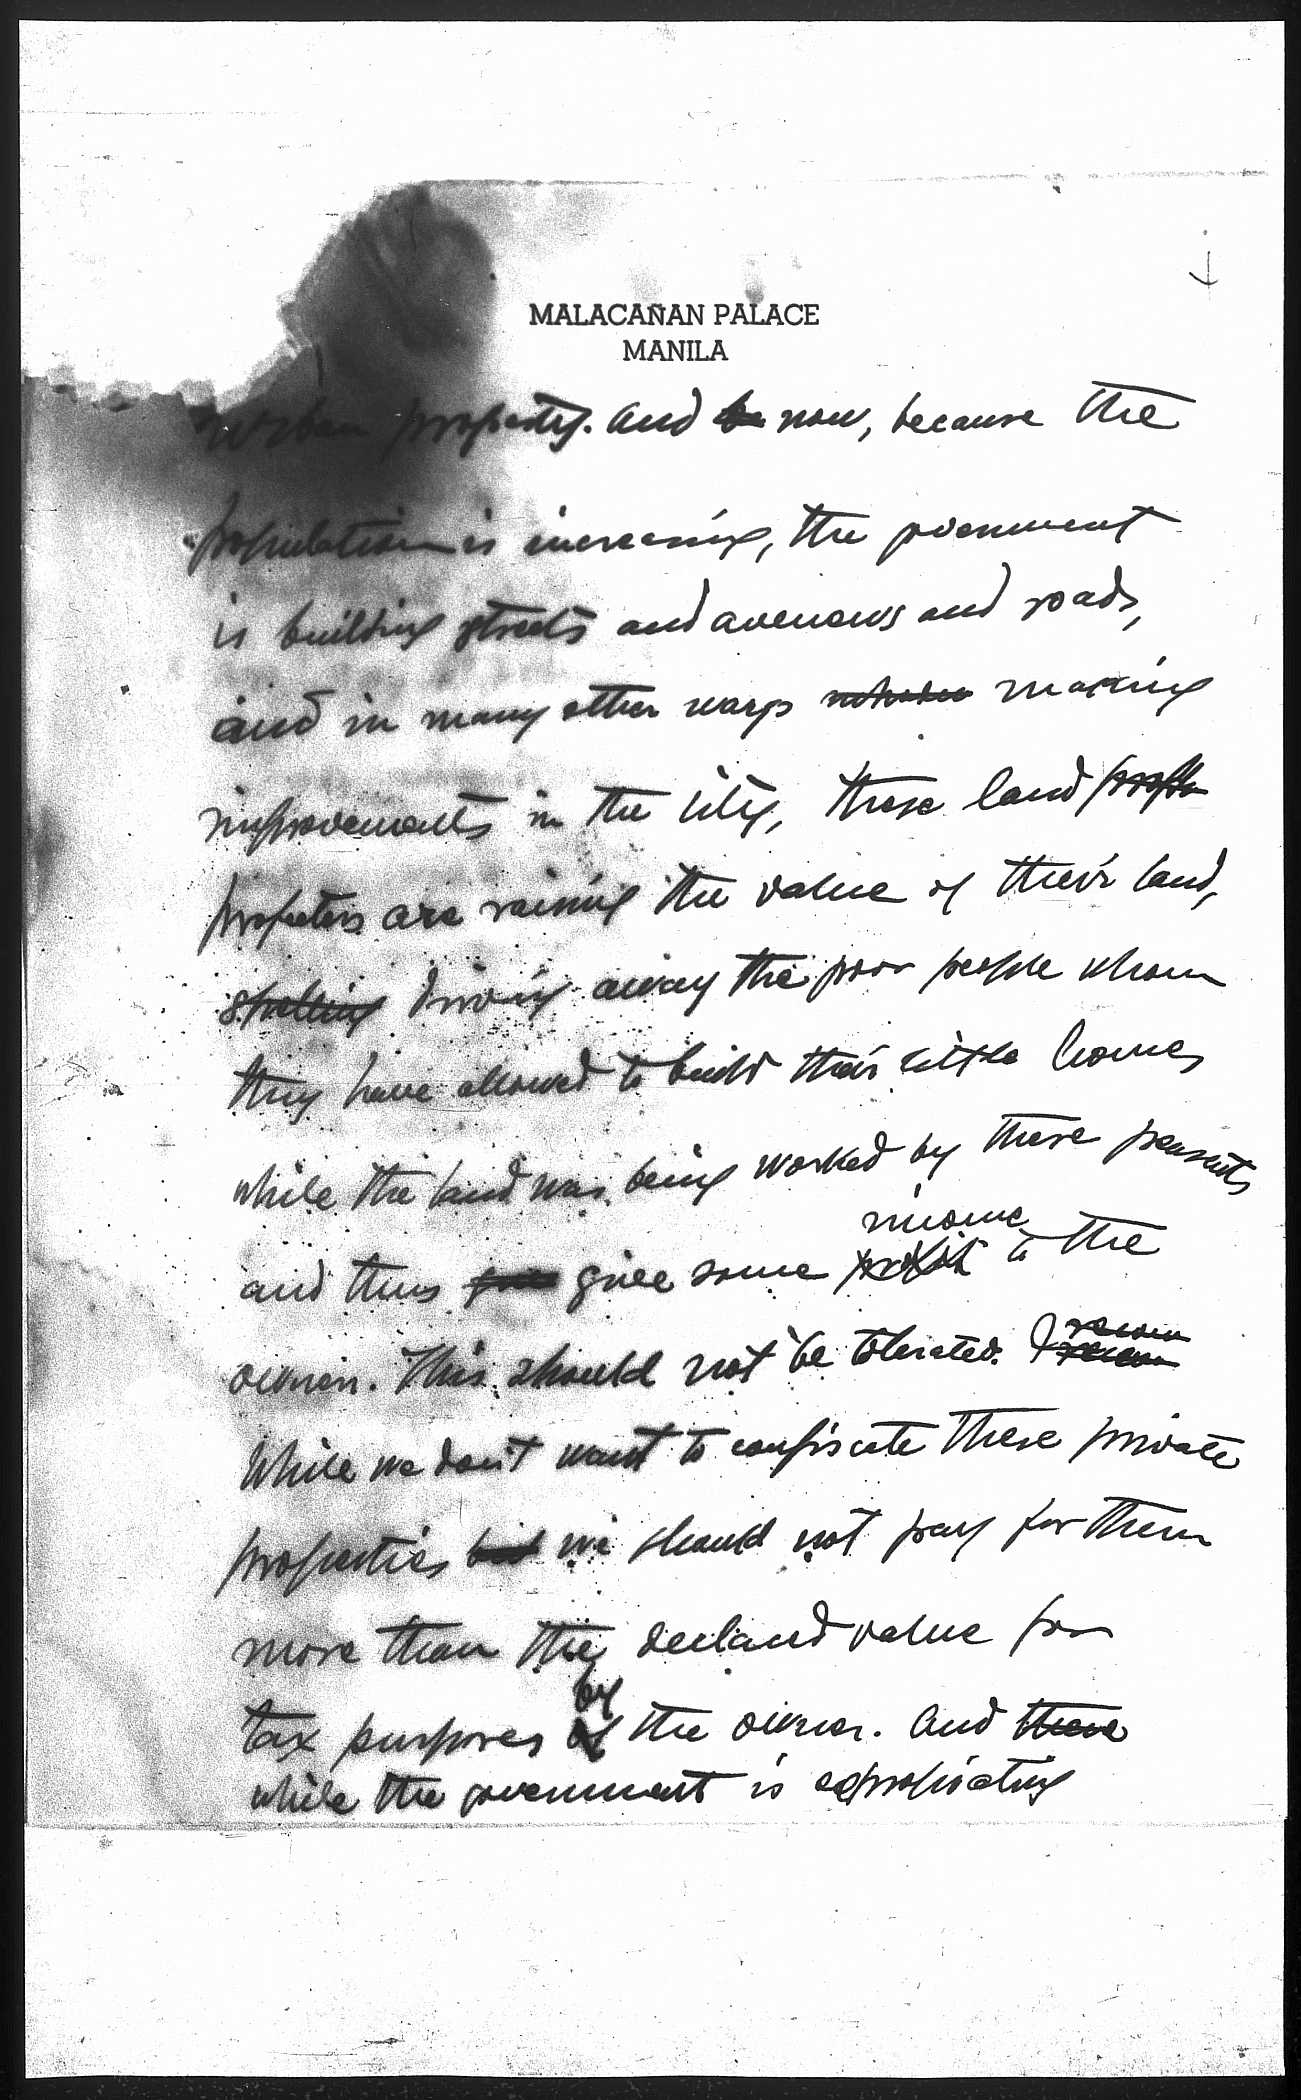 MALACAÑAN PALACE
MANILA
urban property. And now, because the
population is increasing, the government
is building streets and avenues and roads,
and in many other ways making
improvements in the city, these land
profiteers are raising the value of their land,
driving away the poor people whom
they have allowed to build their little homes
while the land was being worked by these peasants
income
and thus give some profit to the
owner. This should not be tolerated. I
While we don't want to confiscate these private
properties but we should not pay for them
more than the declared value for
by
tax purposes of the owner. And there
while the government is expropriating